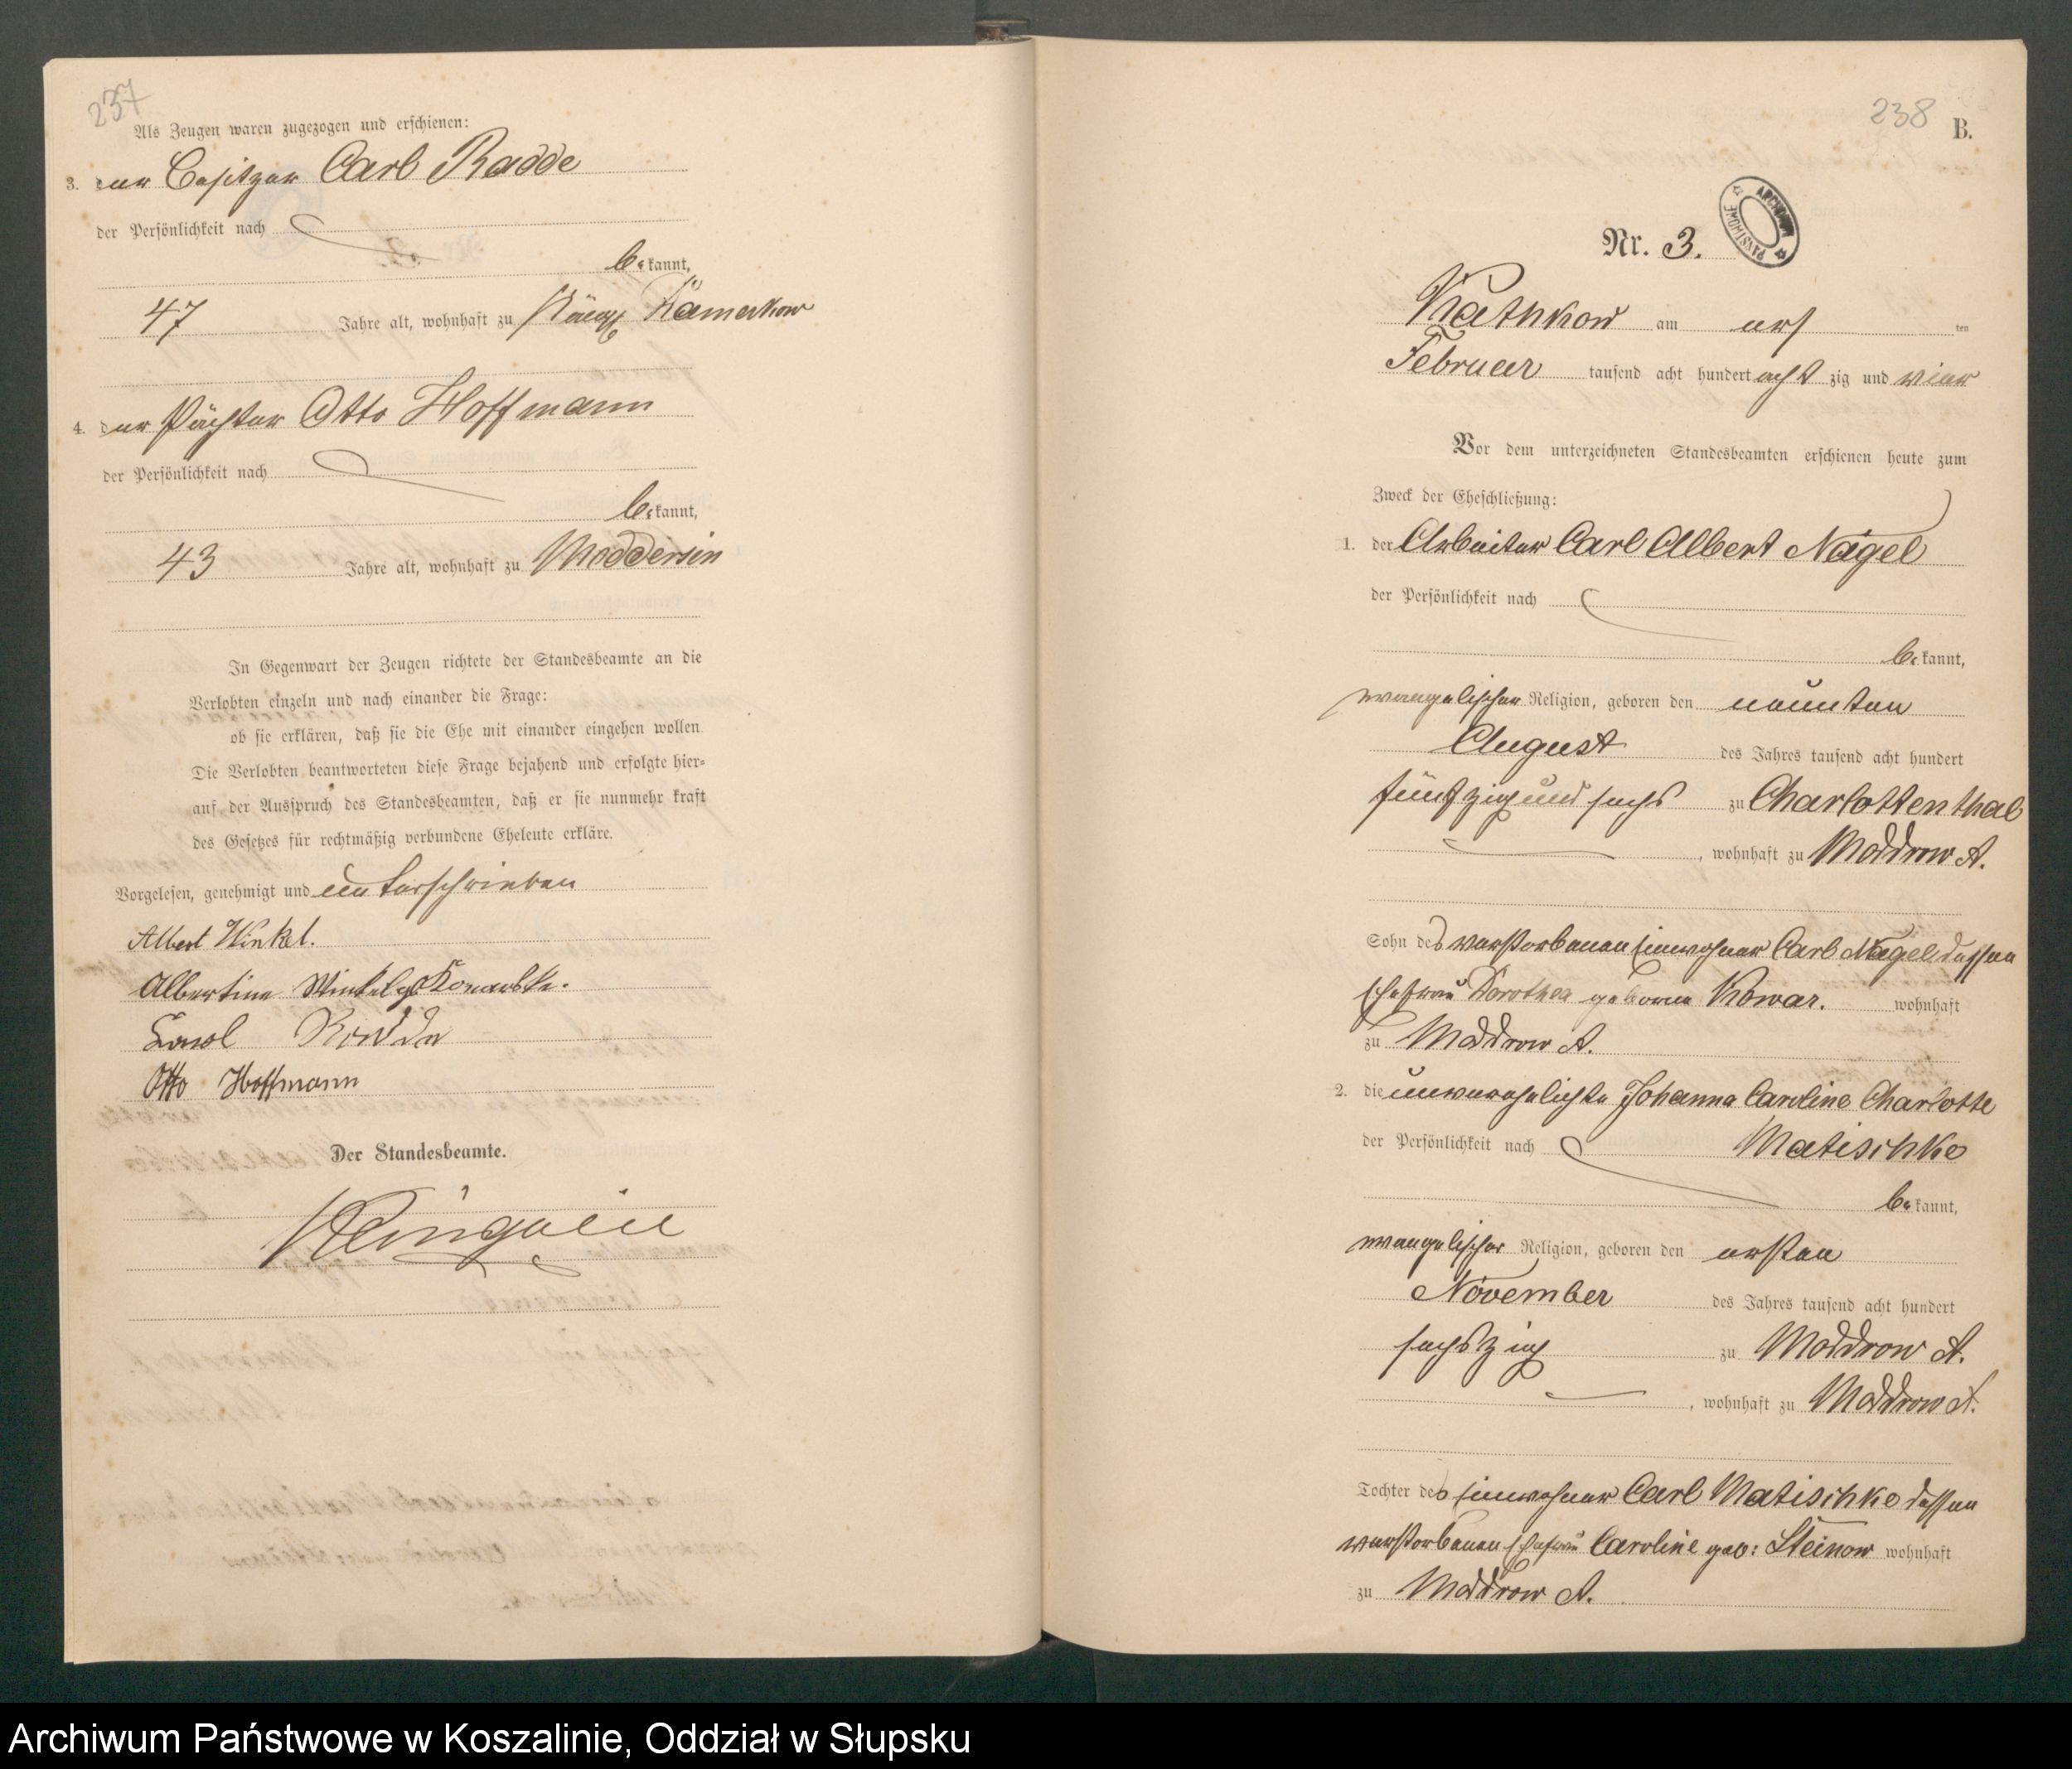 237
Als Zeugen waren zugezogen und erschienen:
3. der Besitzer Carl Radde
der Persönlichkeit nach
bekannt,
47 Jahre alt, wohnhaft zu Königl Damerkow
4. der Pächter Otto Hoffmann
der Persönlichkeit nach
bekannt,
43 Jahre alt, wohnhaft zu Moddersin
In Gegenwart der Zeugen richtete der Standesbeamte an die
Verlobten einzeln und nach einander die Frage:
ob sie erklären, daß sie die Ehe mit einander eingehen wollen.
Die Verlobten beantworteten diese Frage bejahend und erfolgte hier-
auf der Ausspruch des Standesbeamten, daß er sie nunmehr kraft
des Gesetzes für rechtmäßig verbundene Eheleute erkläre.
Vorgelesen, genehmigt und unterschrieben
Albert Winkel.
Albertine Winkel gb Konarske.
Karl Radde
Otto Hoffmann
Der Standesbeamte.
238
B.
ARCHIWUM PAŃSTWOWE
Nr. 3.
am erf ten
Februar tausend acht hundert acht zig und vier
Vor dem unterzeichneten Standesbeamten erschienen heute zum
Zweck der Eheschließung:
1. der Arbeiter Carl Albert Nagel
der Persönlichkeit nach
bekannt,
evangelischer Religion, geboren den neunten
August des Jahres tausend acht hundert
fünfzig und sechs zu Charlottenthal
, wohnhaft zu Moddrow A.
Sohn des verstorbenen Einwohner Carl Nagel dessen
Ehefrau Dorothea geborne Kowar. wohnhaft
zu Moddrow A.
2. die unverehelichte Johanna Caroline Charlotte
der Persönlichkeit nach Matischke
bekannt,
evangelischer Religion, geboren den ersten
November des Jahres tausend acht hundert
sechszig zu Moddrow A.
, wohnhaft zu Moddrow A.
Tochter des Einwohner Carl Matischke dessen
verstorbenen Ehefrau Caroline geb: Steinow wohnhaft
zu Moddrow A.
Archiwum Państwowe w Koszalinie, Oddział w Słupsku